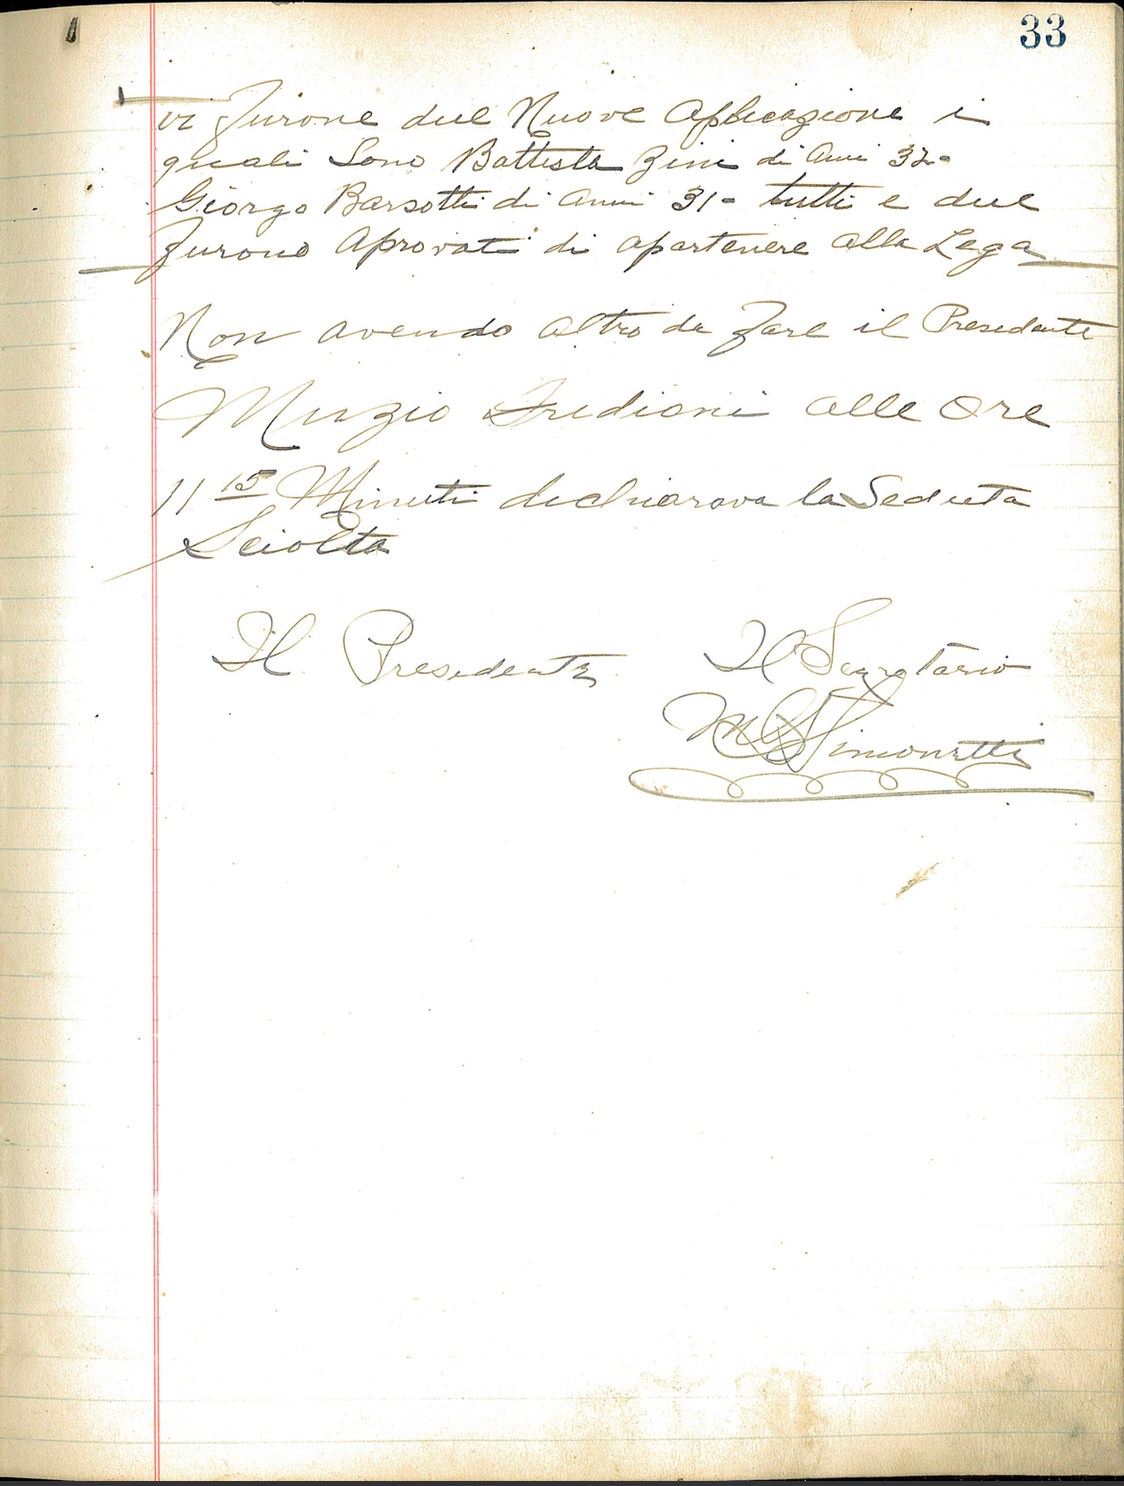 33
vi furone due Nuove Applicazione i
quali Sono Battista Zini di Anni 32-
Giorgo Barsotti di Anni 31- tutti e due
furono Aprovati di apartenere alla Lega
Non avendo altro da fare il Presedente
Muzio Frediani alle Ore
11 15 Minuti dichiarava la Seduta
Sciolta
Il Presedente
Il Segretario
M Simonetti